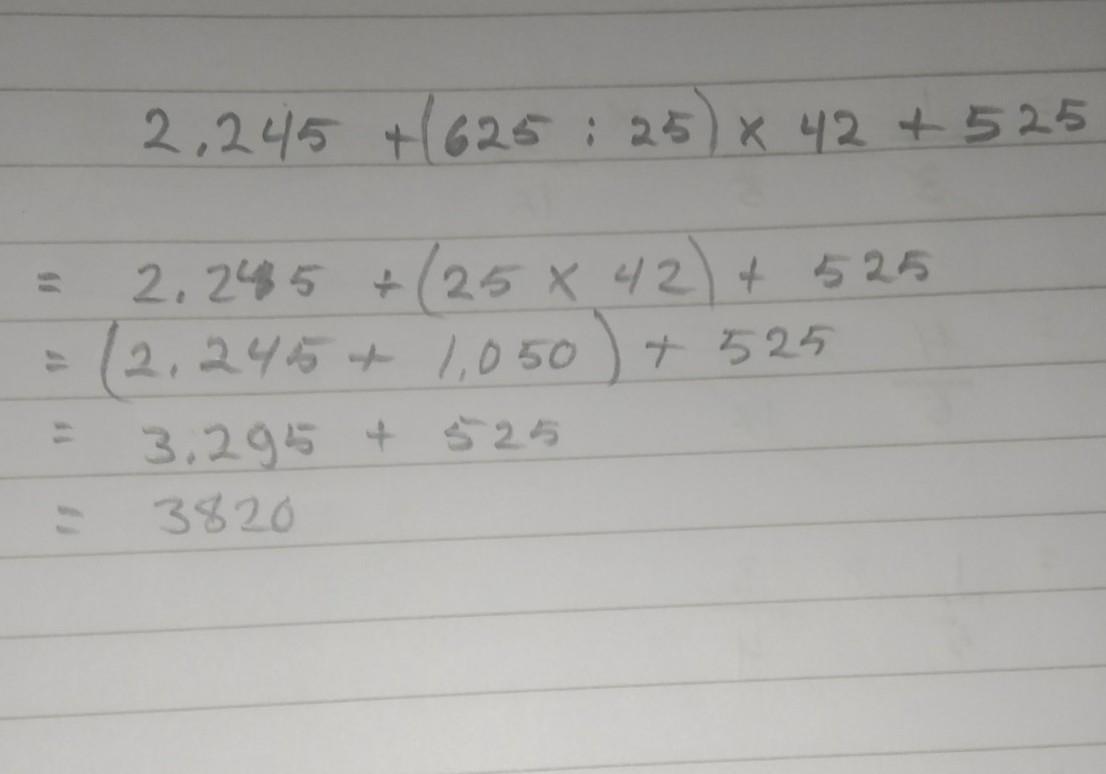 2.245 + (625 : 25) × 42 + 525
= 2.245 + (25 × 42) + 525
= (2.245 + 1.050) + 525
= 3.295 + 525
= 3820